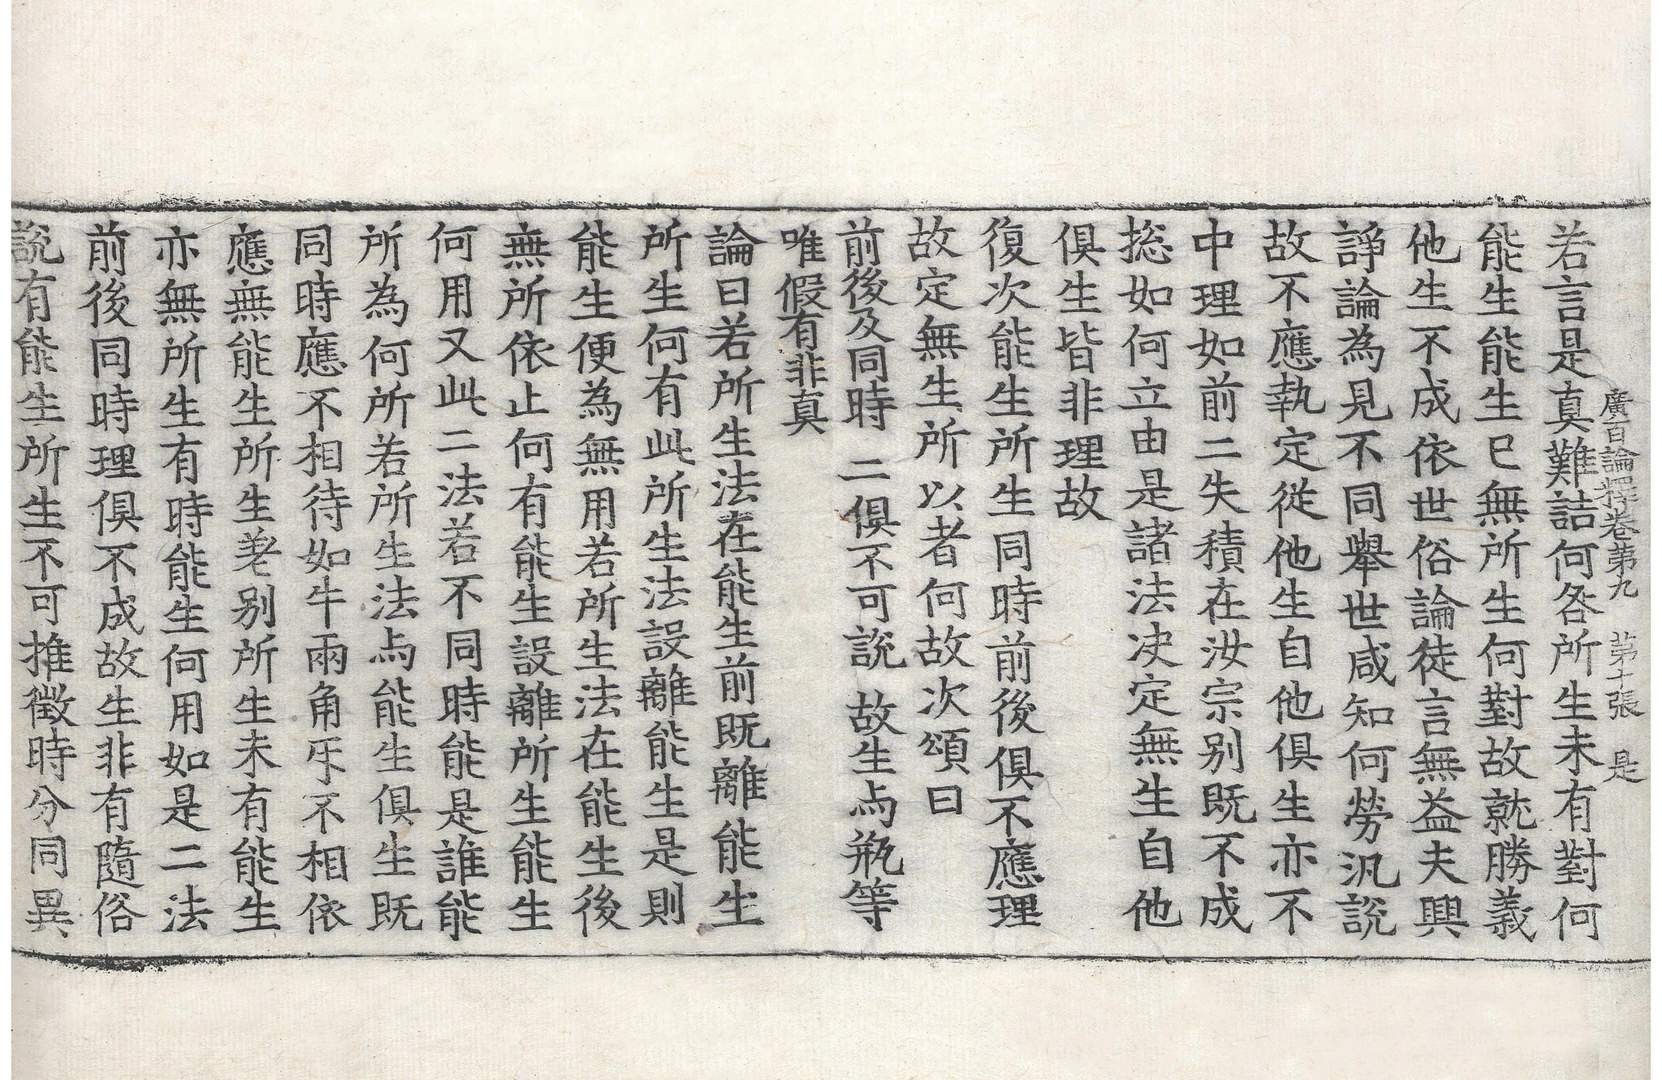 廣百論釋卷第九　第十張　是
若言是真難詰何咎所生未有對何
能生能生已無所生何對故就勝義
他生不成依世俗論徒言無益夫興
諍論為見不同舉世咸知何勞汎說
故不應執定從他生自他俱生亦不
中理如前二失積在汝宗別既不成
捴如何立由是諸法決定無生自他
俱生皆非理故
復次能生所生同時前後俱不應理
故定無生所以者何故次頌曰
前後及同時　二俱不可說　故生與瓶等
唯假有非真
論曰若所生法在能生前既離能生
所生何有此所生法設離能生是則
能生便為無用若所生法在能生後
無所依止何有能生設離所生能生
何用又此二法若不同時能是誰能
所為何所若所生法與能生俱生既
同時應不相待如牛兩角牙不相依
應無能生所生差別所生未有能生
亦無所生有時能生何用如是二法
前後同時理俱不成故生非有隨俗
說有能生所生不可推徵時分同異